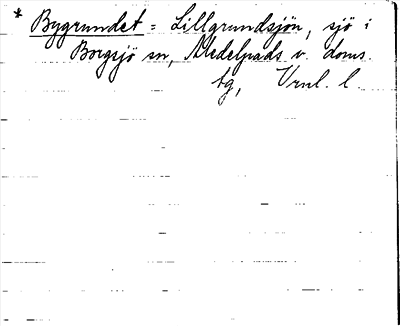 * Bygrundet = Lillgrundsjön, sjö i
Borgsjö sn, Medelpads v. doms.
tg, Vrnl. l.